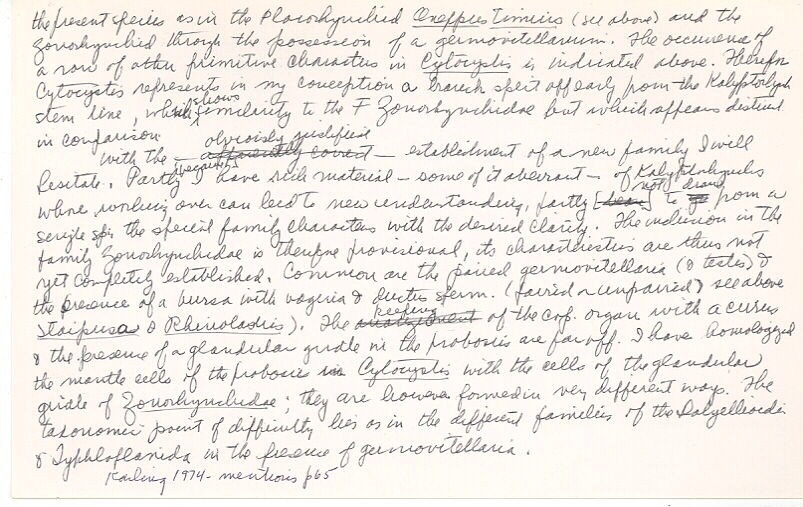 the present species as in the Placorhynchid Oneppus timius (see above) and the
Zonorhynchid through the possession of a germovitellarium. The occurence of
a row of other primitive characters in Cytocystis is indicated above. Therefor
Cytocystis represents in my conception a branch split off early from the Kalyptorhynch
stem line, which shows similarity to the F Zonorhynchidae but which appears distinct
in comparison
with the — obviously justified — establishment of a new family I will
hesitate. Partly because I have rich material – some of it aberrant – of Kalyptorhynchs
whose working over can lead to new understanding, partly [ ] not to draw from a
single sp. the special family characters with the desired clarity. The inclusion in the
family Zonorhynchidae is therefore provisional, its characteristics are thus not
yet completely established. Common are the paired germovitellaria (& testes) &
the presence of a bursa with vagina & ductus sperm. (paired ~ unpaired) see above
Utaipusa & Rhinolasius). The keeping of the cop. organ with a cirrus
& the presence of a glandular girdle in the proboscis are far off. I have homologized
the mantle cells of the proboscis in Cytocystis with the cells of the glandular
girdle of Zonorhynchidae; they are however formed in very different way. The
taxonomic point of difficulty lies as in the different families of the Dalyellioida
& Typhloplanida in the presence of germovitellaria.
Karling 1974 - mentions p65